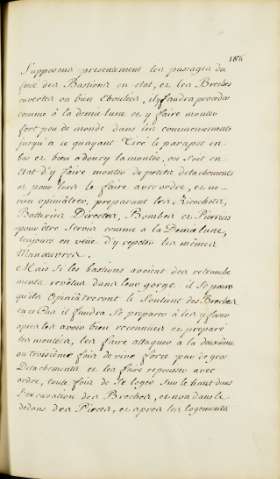 186
Supposons presentement les passages du
fossé des Bastions en etat, et les Breches
ouvertes ou bien Eboulées, il faudra proceder
comme à la demie lune et y faire monter
fort peu de monde dans les commencements
jusqu'à ce qu'ayant Tiré le parapet en
bas et bien adoucy la montée, on soit en
etat d'y faire monter de petits detachements
et pour lors le faire avec ordre, et
rien opiniâtrer, preparant les Ricochets,
Batteries Directes, Bombes et Pierriers
pour être servis comme à la Demie lune,
toujours en vüe d'y repeter les mêmes
Manœuvres.
Mais si les bastions avoient des retranche
ments revêtus dans leur gorge, il se pourra
qu'ils Opiniâtreront le Soutient des Breches
en ce Cas il faudra Se preparer à les y forcer
apres les avoir bien reconnües et preparé
les montées, les faire attaquer à la deuxième
ou troisième fois de vive force par de gros
Detachements et les faire repousser avec
ordre, toute fois de Se loger Sur le haut dans
l'excavation des Breches, et non dans le
dedans des Pieces, et apres les logements